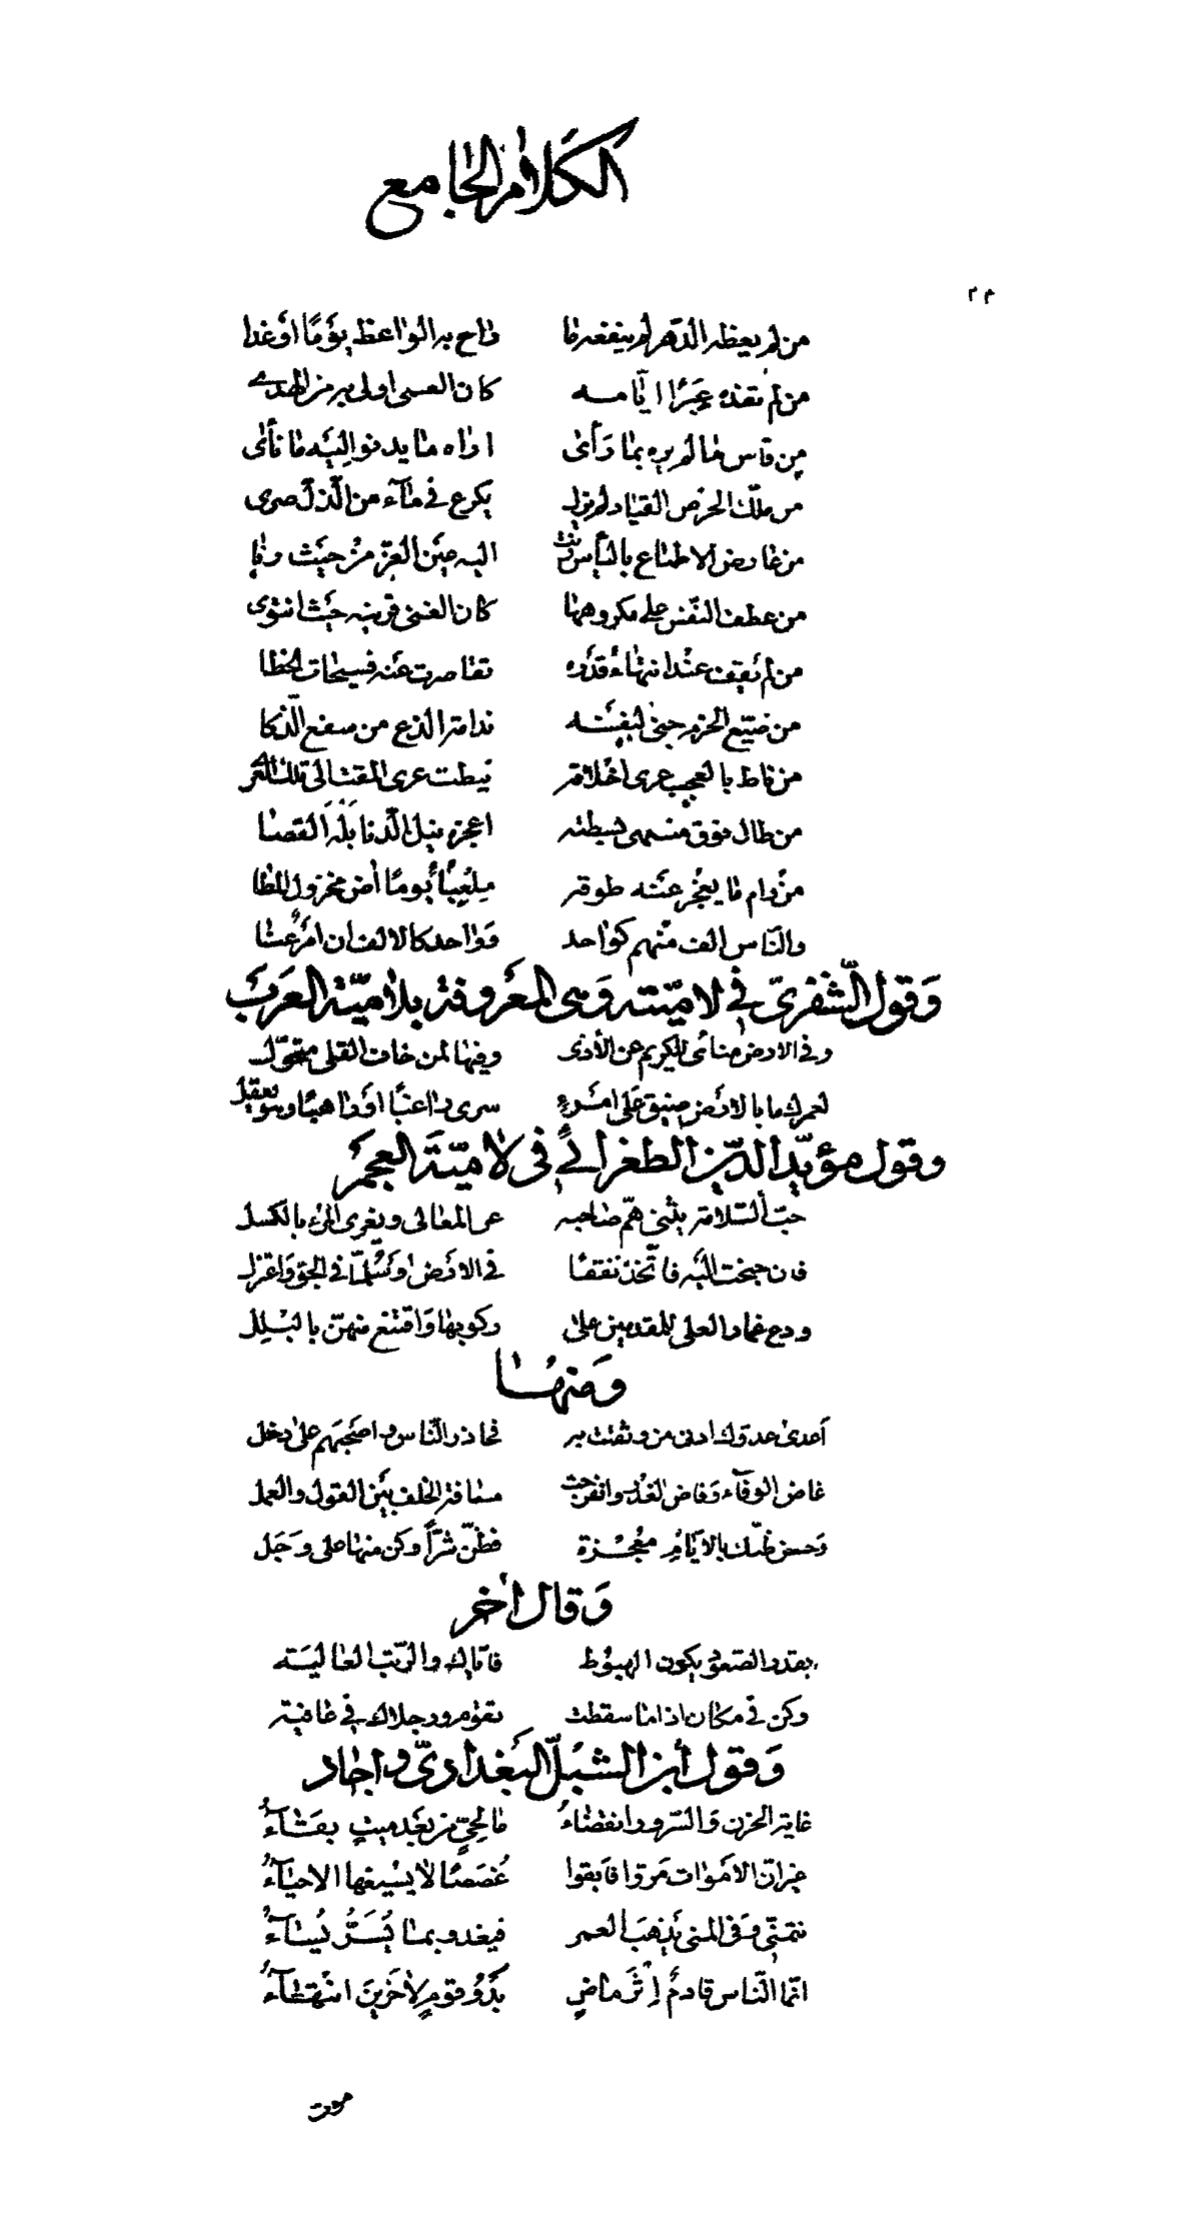 الكلام الجامع
من لم يعظه الدهر لم ينفعه ما راح به الواعظ يَوْمًا أوْ غدا
من لم تفده عِبَرًا ايّامه كان العمى اولى به من الهدى
من قاس ما لم يره بما رَأى اراه ما يدنو اليَه ما نأى
من ملّك الحرْص القياد لم يزل يكرع فى مآء من الذّلّ صرى
من عارض الاطماع باليأس رنت اليه عيَن العزّ منْ حيَث رنا
من عطف النفس على مكروهها كان الغنى قرينه حيَث انتوى
من لم يَقف عنْد انتهاء قدَره تقاصرت عَنه فسيحات الخطا
من ضيّع الحزم جنى لنفسَه ندامة الذع من سفع الذّكا
من ناط بالعجب عرى اخْلاقه نيطت عرى المقت الى تلك العرى
من طال فوق منتهى بسطته اعجزه نيل الدّنا بَلْهَ القصا
منْ رام ما يعجْز عَنه طوقه مِلعِبْأ يَومًا أض مخزول المطا
والنّاس الف منْهم كواحد وَواحد كالالف ان امْرٌ عنا
وَقول الشّنفرىّ فى لاميّته وَهى المعَروفة بلاميّة العَرَب
وفى الارض منأىً للكريم عن الأذى وفيها لمن خاف القلى متحَوّل
لعمرك ما بالارَض ضيق عَلى امْرءٍ سرى راغبًا اوْ راهبًا وهو يعقل
وقول مؤيّد الدّين الطغرائى فى لاميّة العجم
حبّ السّلامة يثنى همّ صاحبه عن المعالى ويغرى المرْء بالكسل
فان جنحت اليَه فاتّخذ نفقًا فى الارَض اوْ سُلّمًا فى الجوّ وَاعتزل
ودع غمار العلى للمقدمين على ركوبها وَاقتنع منهنّ بالبَلل
وَمنهُا
أعدى عدوّك ادنى من وثقت به فحاذر النّاس واصْحَبهم على دخل
غاض الوفَآء وَفاض الغدْر وانفرجت مسَافة الخلف بيَن القول والعمل
وَحسن ظنّك بالايّامِ معْجَزة فظنّ شرّاً وكن منها على وَجَل
وَقال اٰخر
بقدر الصّعود يكون الهبوُط فايّاك والرّتب العاليَه
وكن فى مكان اذا ما سقطت تقوم ورجلاك فى عافية
وَقول أبن الشبْل البَغدادىّ واجَاد
غاية الحزن وَالسّرور انقضَاءُ مَا لحىٍّ من بعَد ميتٍ بقَآءُ
غير انّ الامَوات مَروّا فابقوا غُصَصًا لا يسْيغها الاحيَآءُ
نتمنّى وَفى المنى يَذهبَ العمر فيغدو بما يَسُرُّ يُسَآءُ
انّما النّاس قادمٌ اِثْرَ ماضٍ بَدْوُ قومٍ لاٰخَرينَ انْتِهآءُ
موت